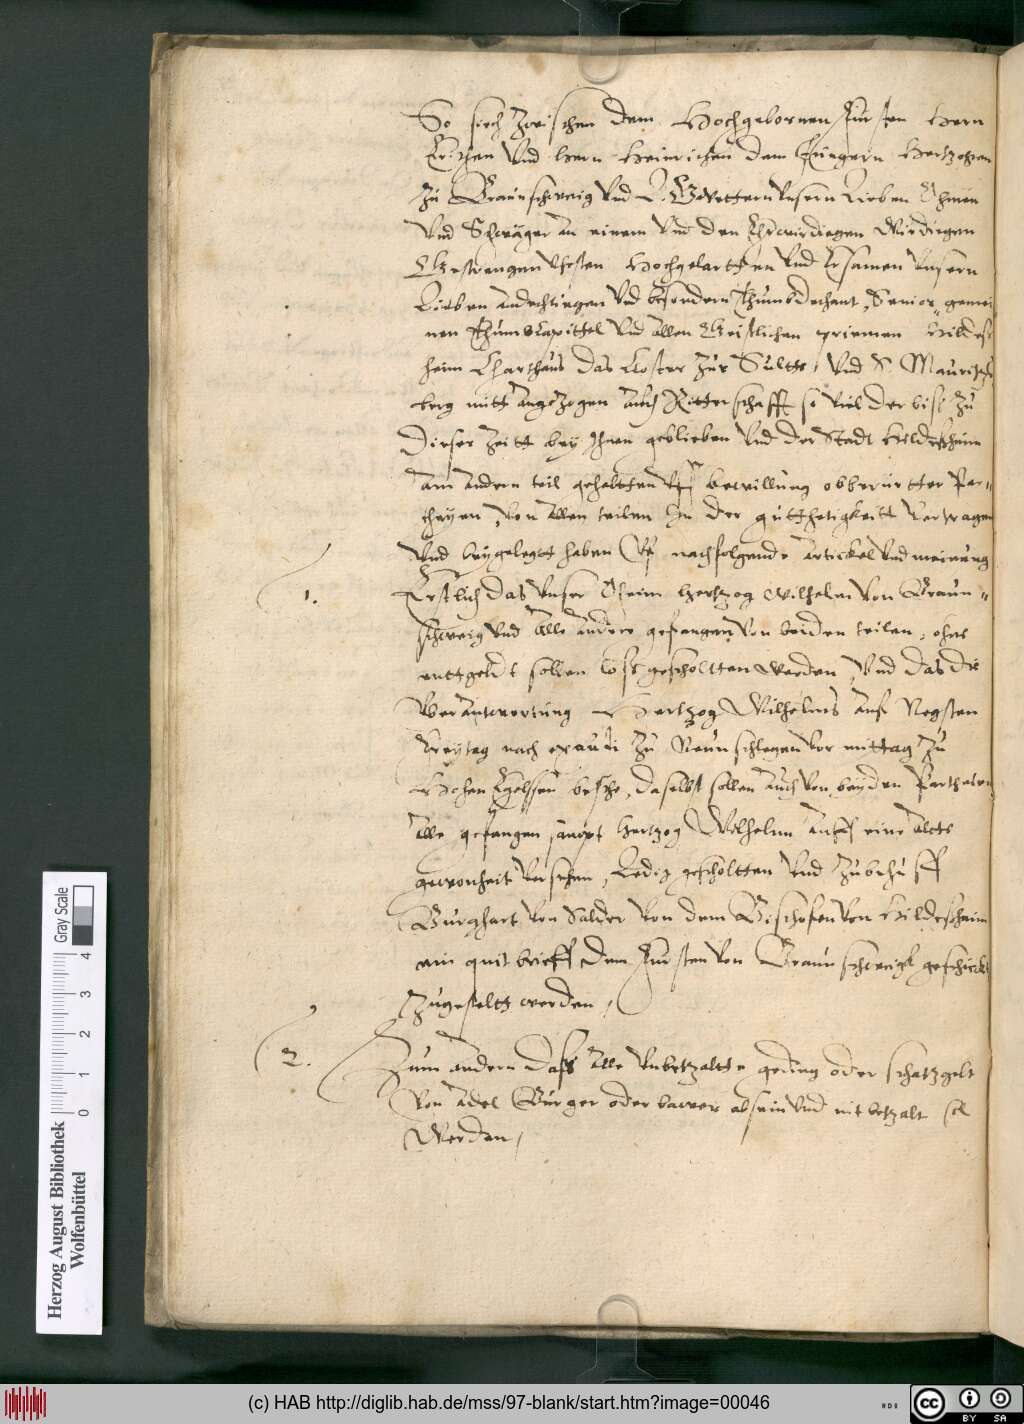 So sich zwischen dem Hochgebornen Fursten Hern
Erichen vnd hern Heinrichen dem Jungern Hertzogen
zu Braunschweig vnd L. Gevettern vnsern Lieben Ohmen
vnd Schwäger an einem vnd den Ehrwirdiegen Würdiegen
Gestrengen Vhesten Hochgelartten vnd Ersamen vnsern
Lieben andechtiegen vnd besondern Thumbdechant, Senior gemei
nen Thumbcapittel vnd allen Geistlichen Hildes
heim Charthaus das Closter zur Sultte, vnd S. Mauritzs
berg mitt angezogen auch Ritterschafft so viel der bisz zu
dieser Zeitt bey Ihnen geblieben vnd der Stadt Hildesheim
am andern teil gehaltten vff bewillung obberurtter Par=
theyen, von allen teilen In der gutthetigkeitt vertragen
vnd beygelegtt haben vff nachfolgende artickel vnd meinung
1.
Erstlich das vnser Oheim hertzog Wilhelm von Braun=
schweig vnd alle andere gefangen von beiden teilen, ohne
enttgeldt sollen losz gescholtten werden, vnd das die
Verantwortung Hertzog Wilhelms auf Negsten
Freytag nach exaudi zu Neun schlegen vor mittag zu
Hohen Egelssen besche, daselbst sollen auch von beyden Partheien
alle gefangen sampt hertzog Wilhelm auff eine alte
gewonheit versehen, Ledig gescholtten vnd zu behuff
Burghart von Salder von dem Bischofen von Hildesheim
ein quit brieff dem Fursten von Braunschweigk geschickt
zugestaltt werden,
2.
Zum andern dass alle vnbetzaltte geding oder schatzgelt
von adel Burger oder bawer absein vnd nit betzalt sol
Werden,
Herzog August Bibliothek
Wolfenbüttel
Gray Scale
0 1 2 3 4
(c) HAB http://diglib.hab.de/mss/97-blank/start.htm?image=00046
cc BY SA